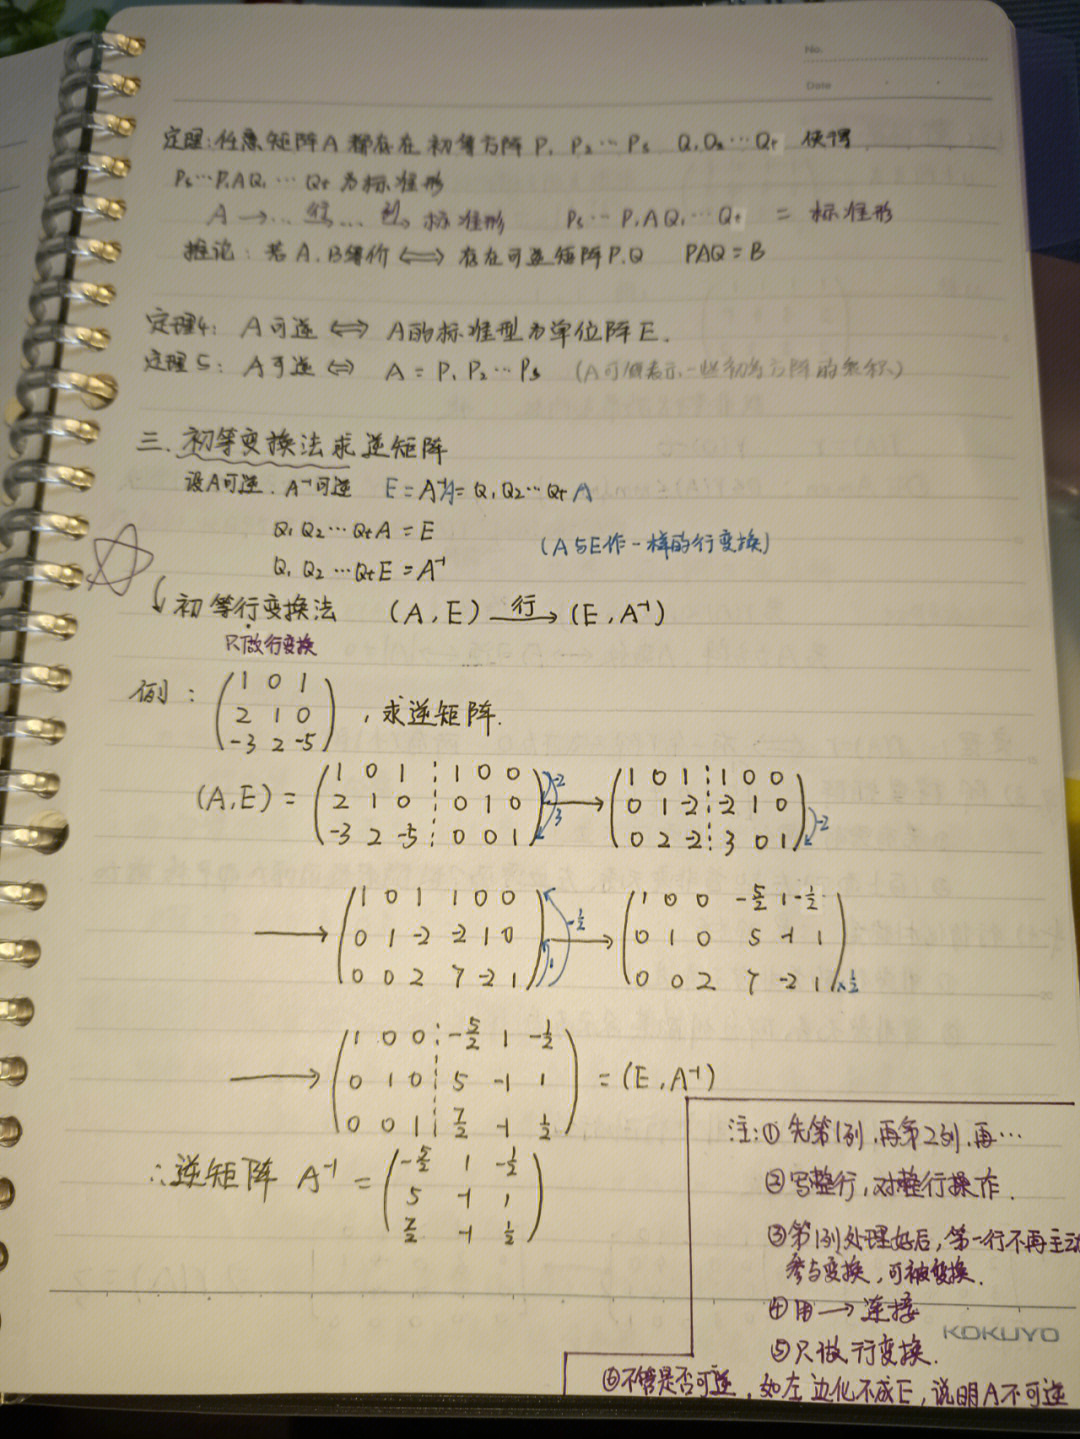 No.
Date
定理:任意矩阵A都存在初等方阵 P₁ P₂ … Ps Q₁Q₂…Qt 使得
Ps…P₁AQ₁…Qt 为标准形
A →… 行 … 列 标准形 Ps … P₁AQ₁…Qt = 标准形
推论:若A、B等价 ⟺ 存在可逆矩阵P.Q PAQ=B
定理4: A可逆 ⟺ A的标准型为单位阵E.
定理5: A可逆 ⟺ A = P₁P₂…Ps (A可 表示一些初等方阵的乘积)
三. 初等变换法求逆矩阵
设A可逆. A⁻¹可逆 E=A⁻¹A=Q₁Q₂…QtA
Q₁Q₂…QtA=E
(A与E作一样的行变换)
Q₁Q₂…QtE=A⁻¹
初等行变换法 (A,E) 行→ (E,A⁻¹)
只做行变换
例: ( 1 0 1
2 1 0
-3 2 -5 ) ,求逆矩阵.
(A,E) = ( 1 0 1 ⋮ 1 0 0 -2 → ( 1 0 1 ⋮ 1 0 0
2 1 0 ⋮ 0 1 0 3 0 1 -2 ⋮ -2 1 0 -2
-3 2 -5 ⋮ 0 0 1 ) 0 2 -2 ⋮ 3 0 1 )
→ ( 1 0 1 1 0 0 -½ → ( 1 0 0 -5/2 1 -½
0 1 -2 -2 1 0 1 0 1 0 5 -1 1
0 0 2 7 -2 1 ) 0 0 2 7 -2 1 ) ×½
→ ( 1 0 0 ⋮ -5/2 1 -½
0 1 0 ⋮ 5 -1 1 = (E,A⁻¹)
0 0 1 ⋮ 7/2 -1 ½ )
∴逆矩阵 A⁻¹ = ( -5/2 1 -½
5 -1 1
7/2 -1 ½ )
注:①先第1列,再第2列,再…
②写整行,对整行操作.
③第1列处理好后,第一行不再主动
参与变换,可被变换.
④用→连接
⑤只做行变换.
⑥不管是否可逆,如左边化不成E,说明A不可逆
KOKUYO